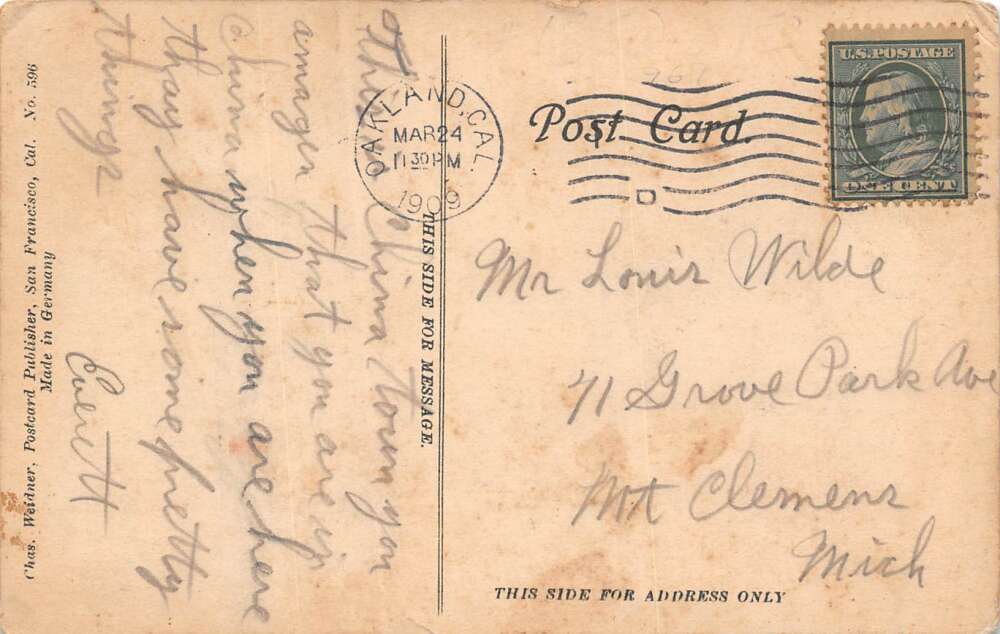 Chas. Weidner, Postcard Publisher, San Francisco, Cal. No. 596
Made in Germany
This China Town you
amagen that you are in
China when you are here
thay have some pretty
things
Everett
THIS SIDE FOR MESSAGE.
OAKLAND, CAL.
MAR 24
11 30 PM
1909
Post Card.
U.S. POSTAGE
ONE CENT
Mr Louis Wilde
71 Grove Park Ave
Mt Clemens
Mich
THIS SIDE FOR ADDRESS ONLY